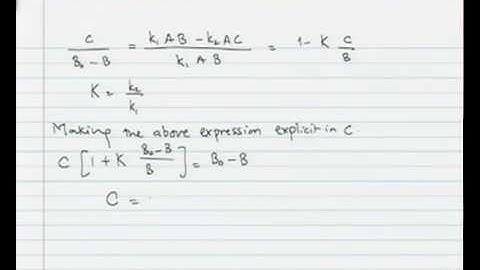 C / (B₀ - B) = (k₁AB - k₂AC) / (k₁AB) = 1 - K C/B
K = k₂/k₁
Making the above expression explicit in C.
C [1 + K (B₀-B)/B] = B₀ - B
C =